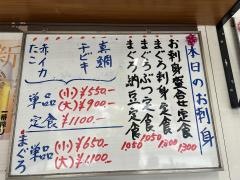 本日のお刺身
お刺身盛合せ定食 1300
まぐろ刺身定食 1300
まぐろぶつ定食 1050
まぐろ納豆定食 1050
真鯛
チビキ
赤イカ
たこ
単品 (小) ¥550-
(大) ¥900-
定食 ¥1100-
まぐろ
単品 (小) ¥650-
(大) ¥1100-